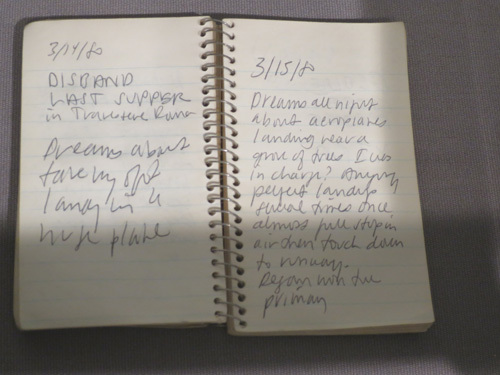 3/14/80
DISBAND
LAST SUPPER
in Trastevere Roma
Dreams about
taking off
landing in a
huge plane
3/15/80
Dreams all night
about aeroplanes
landing near a
grove of trees I was
in charge?
perfect landings
several times once
almost full stop in
air then touch down
to runway.
Reagan won the
primary